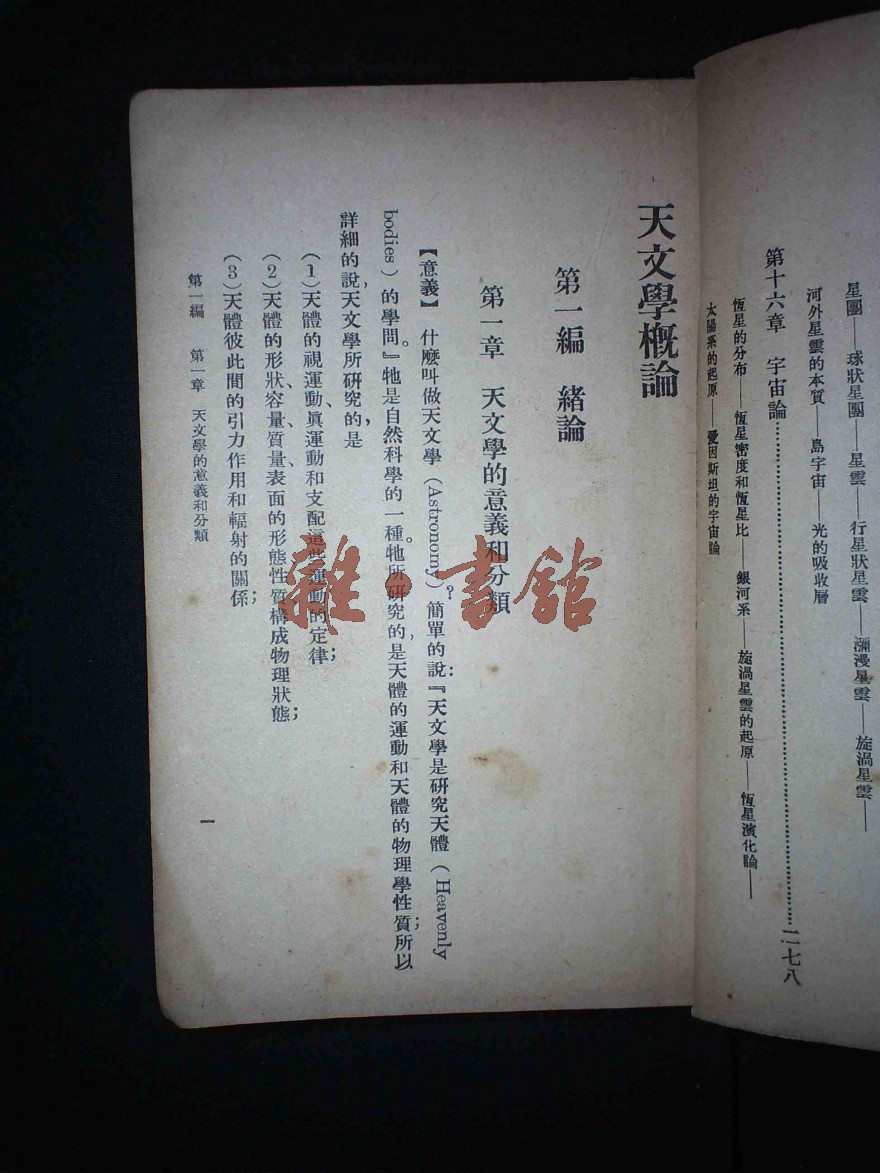 星團——球狀星團——星雲——行星狀星雲——瀰漫星雲——旋渦星雲——
河外星雲的本質——島宇宙——光的吸收層
第十六章　宇宙論……………………二七八
恆星的分布——恆星密度和恆星比——銀河系——旋渦星雲的起原——恆星演化論——
太陽系的起原——愛因斯坦的宇宙論
天文學概論
第一編　緒論
第一章　天文學的意義和分類
【意義】　什麼叫做天文學（Astronomy）？簡單的說：『天文學是研究天體（Heavenly
bodies）的學問。』牠是自然科學的一種。牠所研究的，是天體的運動和天體的物理學性質；所以
詳細的說，天文學所研究的，是
（1）天體的視運動、眞運動和支配這些運動的定律；
（2）天體的形狀、容量、質量、表面的形態、性質、構成、物理狀態；
（3）天體彼此間的引力作用和輻射的關係；
第一編　第一章　天文學的意義和分類
一
雜·書館